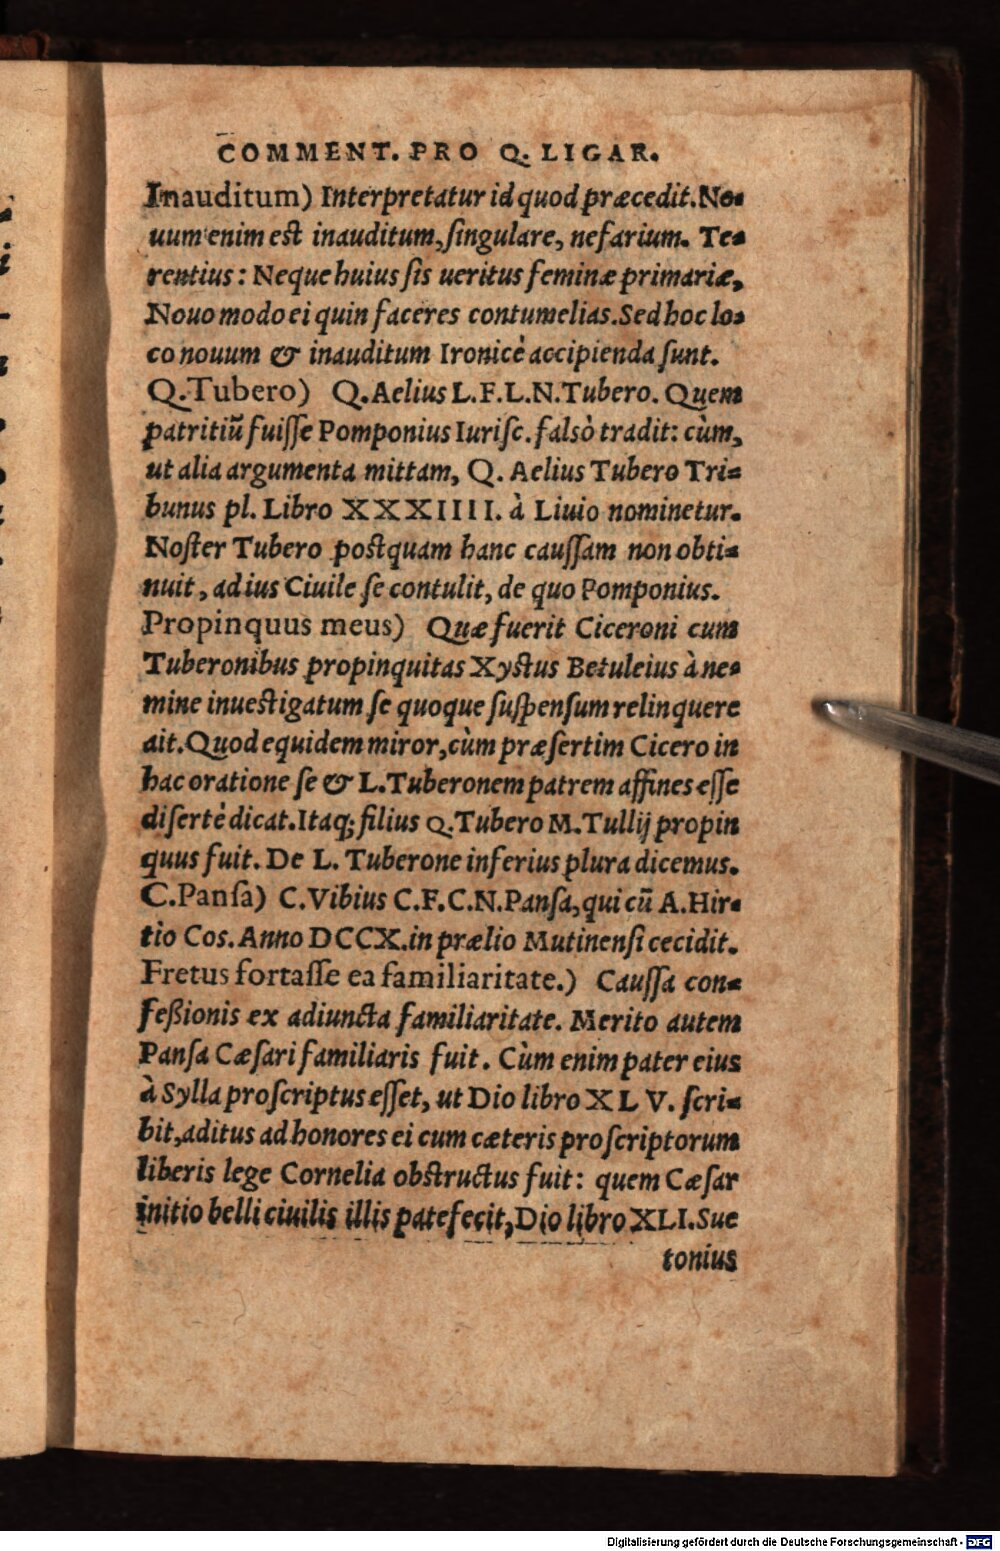 COMMENT. PRO Q. LIGAR.
Inauditum) Interpretatur id quod præcedit. No-
uum enim est inauditum, singulare, nefarium. Te-
rentius: Neque huius sis ueritus feminæ primariæ,
Nouo modo ei quin faceres contumelias. Sed hoc lo-
co nouum & inauditum Ironicè accipienda sunt.
Q. Tubero) Q. Aelius L. F. L. N. Tubero. Quem
patritiũ fuisse Pomponius Iurisc. falsò tradit: cùm,
ut alia argumenta mittam, Q. Aelius Tubero Tri-
bunus pl. Libro XXXIIII. à Liuio nominetur.
Noster Tubero postquam hanc caussam non obti-
nuit, ad ius Ciuile se contulit, de quo Pomponius.
Propinquus meus) Quæ fuerit Ciceroni cum
Tuberonibus propinquitas Xystus Betuleius à ne-
mine inuestigatum se quoque suspensum relinquere
ait. Quod equidem miror, cùm præsertim Cicero in
hac oratione se & L. Tuberonem patrem affines esse
disertè dicat. Itaq; filius Q. Tubero M. Tullij propin
quus fuit. De L. Tuberone inferius plura dicemus.
C. Pansa) C. Vibius C. F. C. N. Pansa, qui cũ A. Hir-
tio Cos. Anno DCCX. in prælio Mutinensi cecidit.
Fretus fortasse ea familiaritate.) Caussa con-
feßionis ex adiuncta familiaritate. Merito autem
Pansa Cæsari familiaris fuit. Cùm enim pater eius
à Sylla proscriptus esset, ut Dio libro XLV. scri-
bit, aditus ad honores ei cum cæteris proscriptorum
liberis lege Cornelia obstructus fuit: quem Cæsar
initio belli ciuilis illis patefecit, Dio libro XLI. Sue
tonius
Digitalisierung gefördert durch die Deutsche Forschungsgemeinschaft - DFG